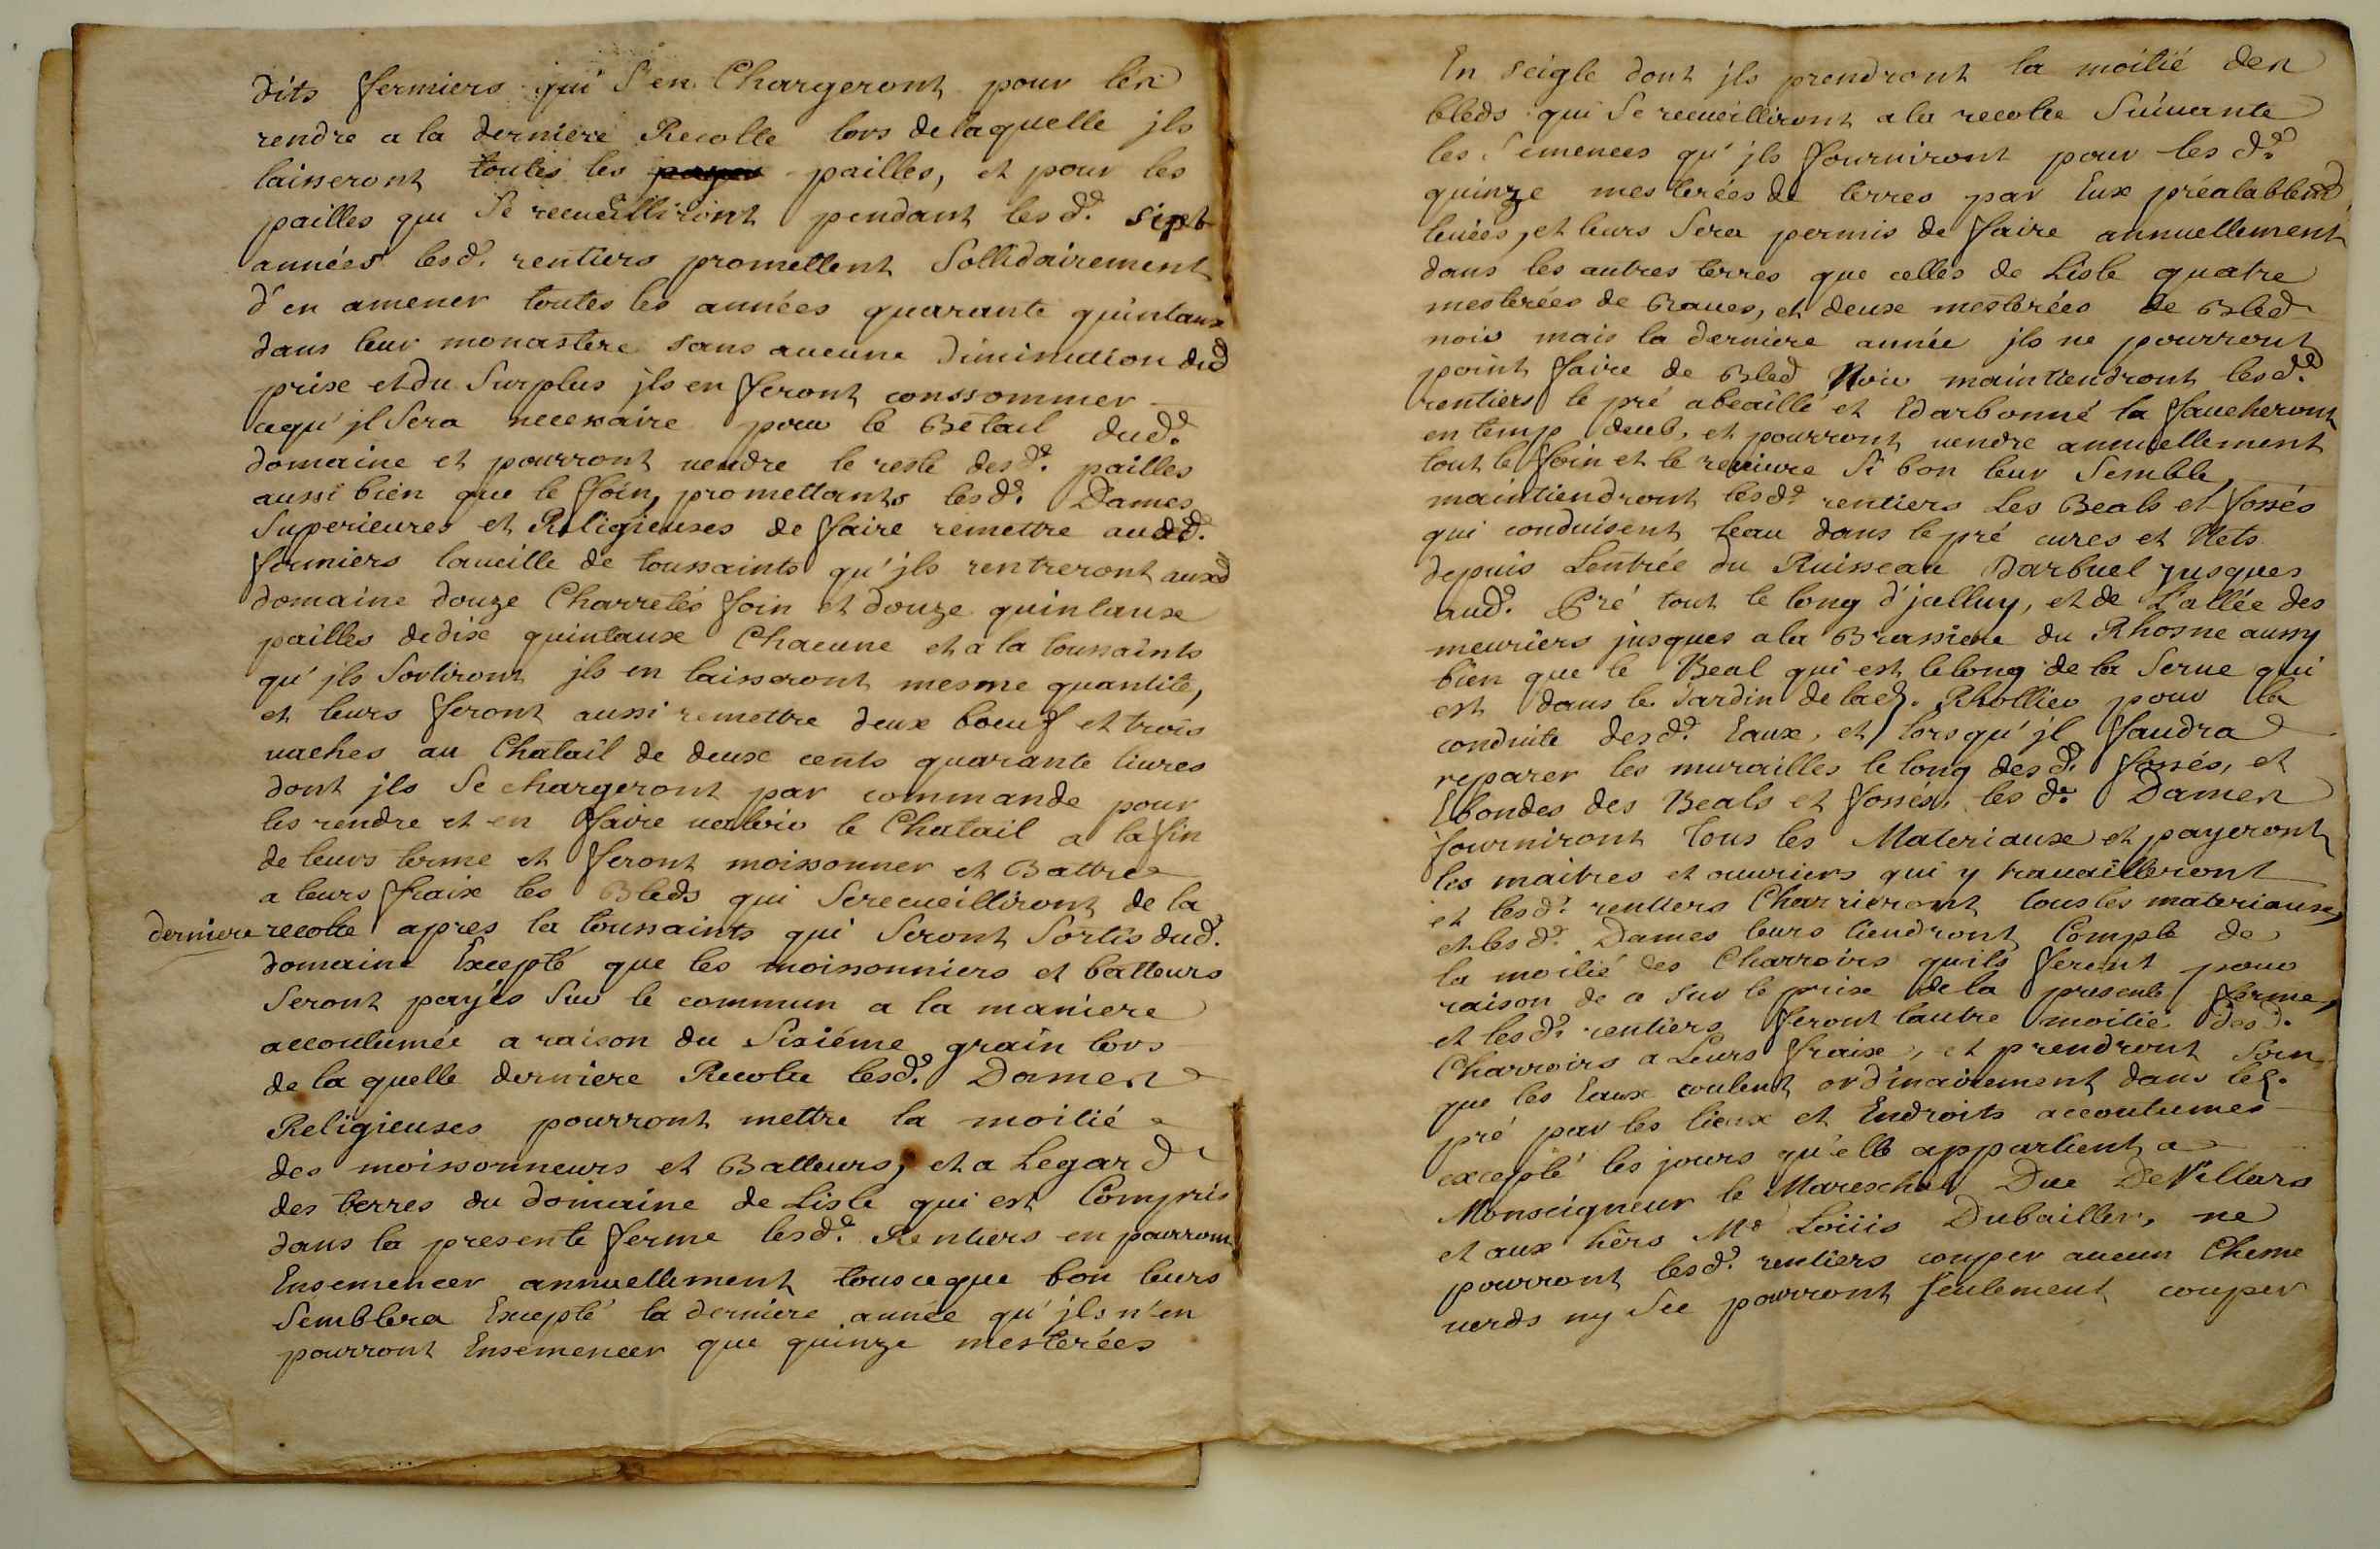 dits fermiers qui s'en Chargeront pour les
rendre a la derniere Recolte lors delaquelle jls
laisseront toutes les pailles, et pour les
pailles qui Se recueilliront pendant lesd. sept
années lesd. rentiers promettent Sollidairement
d'en amener toutes les années quarante quintaux
dans leur monastere sans aucune diminution dud
prix et du Surplus jls en feront conssommer
cequ'jl Sera necessaire pour le Betail dud.
domaine et pourront vendre le reste desd. pailles
aussi bien que le foin, promettants lesd. Dames
Superieures et Religieuses de faire remettre auxd.
fermiers laveille de toussaints qu'jls rentreront auxd
domaine douze Charretés foin et douze quintaux
pailles dedix quintaux Chacune et a la toussaints
qu'jls Sortiront jls en laisseront mesme quantité,
et leurs feront aussi remettre deux boeuf et trois
vaches au Chatail de deux cents quarante livres
dont jls Se chargeront par commande pour
les rendre et en faire valoir le Chatail a la fin
de leurs terme et feront moissonner et Battre
a leurs fraix les Bleds qui Serecueilliront de la
derniere recolte apres la toussaints qui Seront Sortis dud.
domaine Excepté que les moissonniers et batteurs
Seront payés Sur le commun a la maniere
accoutumée a raison du Sixiéme grain lors
de la quelle derniere Recolte lesd. Dames
Religieuses pourront mettre la moitié
des moissonneurs et Batteurs, et a Legard
des terres du domaine de Lisle qui est Compris
dans la presente ferme lesd. Rentiers en pourront
Ensemencer annuellement tousceque bon leurs
Semblera Excepté la derniere année qu'jls n'en
pourront Ensemencer que quinze mesterées
En seigle dont jls prendront la moitié des
bleds qui Se recueilliront a la recolte Suivante
les Semences qu'jls fourniront pour les d.
quinze mesterées de terres par Eux préalablem
levées, et leurs Sera permis de faire annuellement
dans les autres terres que celles de Lisle quatre
mesterées de Raves, et deux mesterées de Bled
noir mais la derniere année jls ne pourront
point faire de Bled Noir maintiendront lesd.
rentiers le pré abeaillé et Edarbonné la faucheront
en temp deub, et pourront vendre annuellement
tout le foin et le revivre Si bon leur Semble,
maintiendront lesd. rentiers Les Beals et fossés
qui conduisent leau dans le pré cures et Nets
depuis Lentrée du Ruisseau Darbuel jusques
aud. Pré tout le long d'jalluy, et de L'allée des
meuriers jusques a la Brassiere du Rhosne aussy
bien que le Beal qui est lelong de la Serve qui
est dans le Jardin de lad. Rhollier pour la
conduite desd. Eaux, et lorsqu'jl faudra
reparer les murailles le long desd. fossés, et
Ebondes des Beals et fossés, les d. Dames
fourniront Tous les Materiaux et payeront
les maitres et ouvriers qui y travailleront
et lesd. rentiers Charrieront tous les materiaux,
et les d. Dames leurs tiendront Compte de
la moitié des Charroirs quils feront pour
raison de ce Sur le prix de la presente ferme,
et les d. rentiers feront lautre moitié desd.
Charroirs a Leurs fraix, et prendront Soin
que les Eaux coulent ordinairement dans led.
pré par les lieux et Endroits accoutumés
excepté les jours qu'elle appartient a
Monseigneur le Mareschal Duc De Villars
et aux hers Mr Loüis Dubaillier, ne
pourront lesd. rentiers couper aucun Chesne
verds ny Sec pourront seulement couper